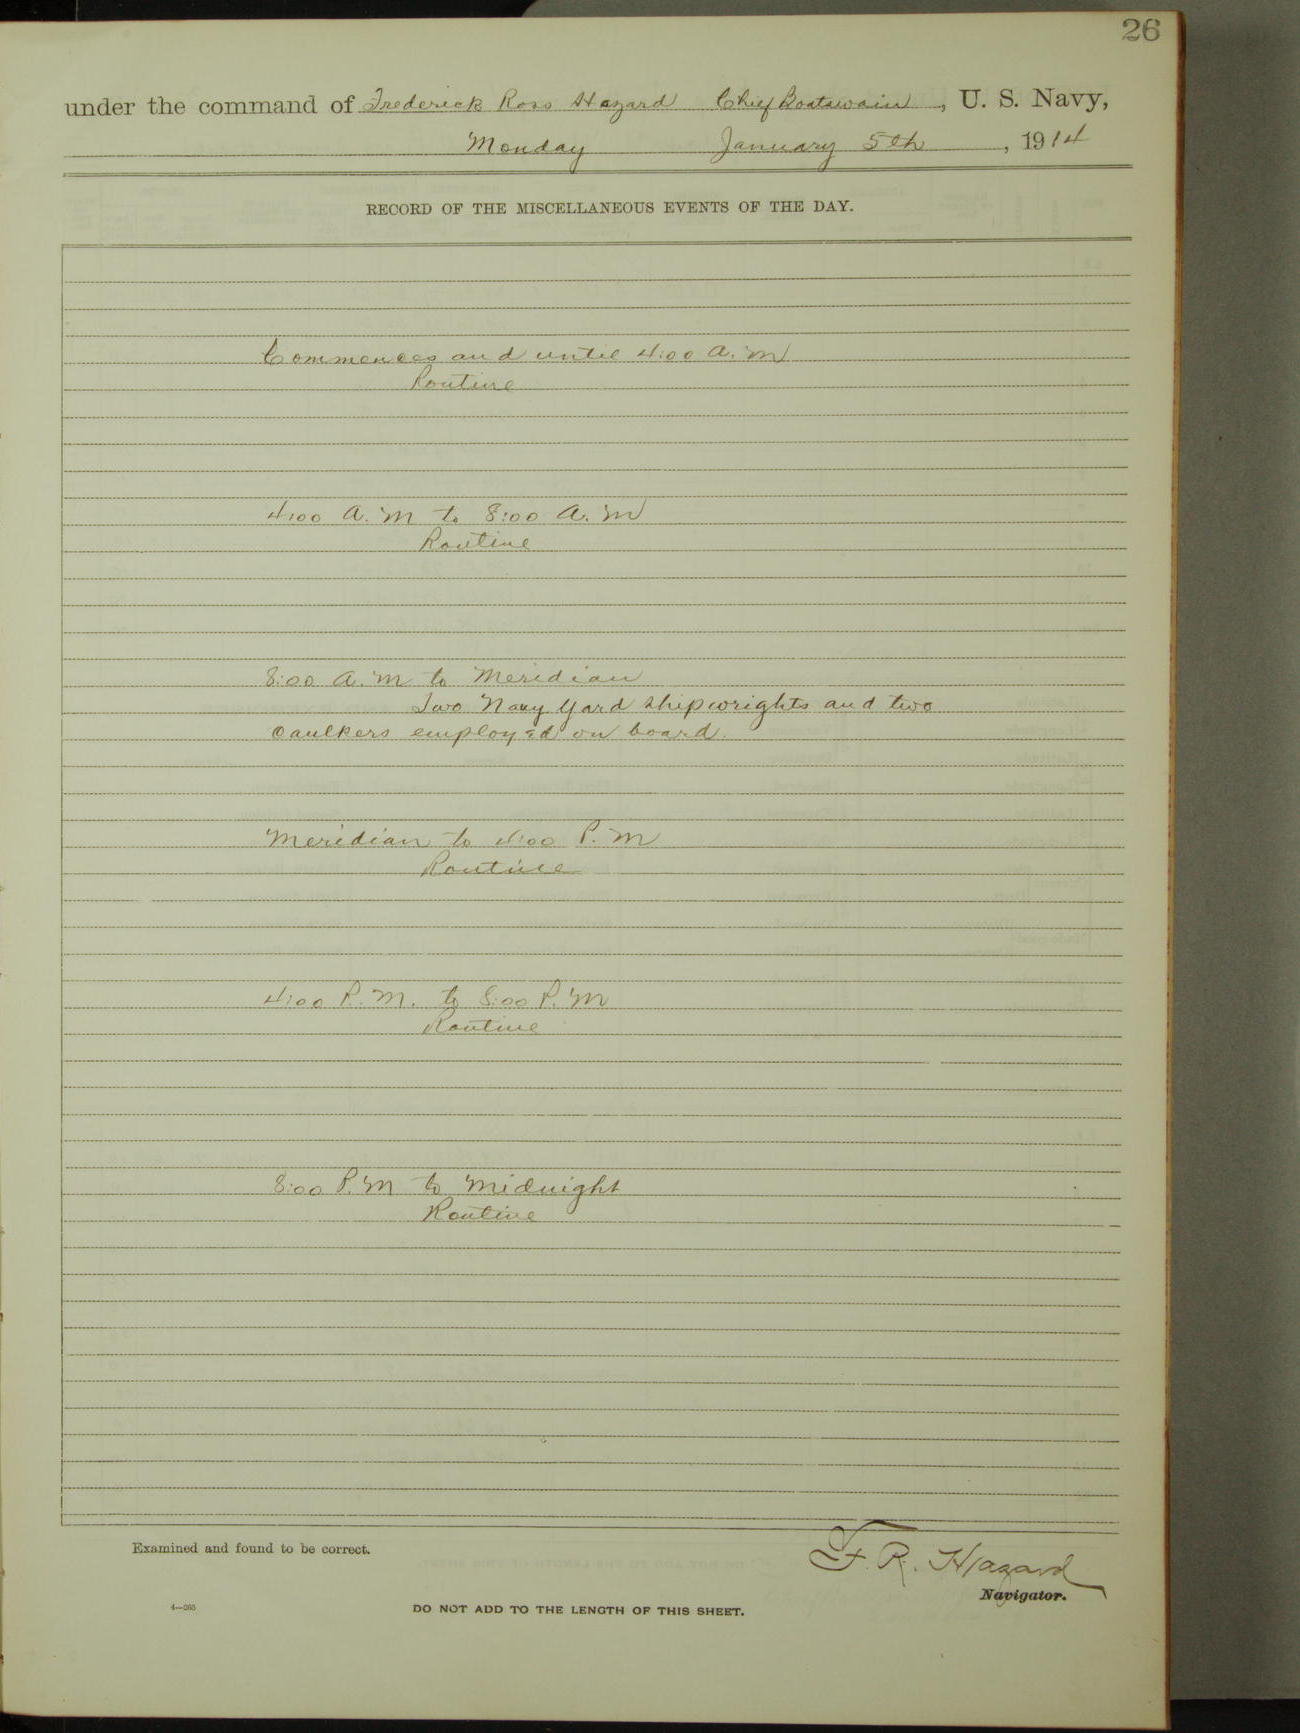 26
under the command of Frederick Ross Hazard Chief Boatswain, U. S. Navy,
Monday January 5th, 1914
RECORD OF THE MISCELLANEOUS EVENTS OF THE DAY.
Commences and until 4:00 A. M
Routine
4:00 A. M to 8:00 A. M
Routine
8:00 A. M to Meridian
Two Navy Yard shipwrights and two
caulkers employed on board.
Meridian to 4:00 P. M
Routine
4:00 P. M. to 8:00 P. M
Routine
8:00 P. M to Midnight
Routine
Examined and found to be correct.
F. R. Hazard
Navigator.
4—265
DO NOT ADD TO THE LENGTH OF THIS SHEET.